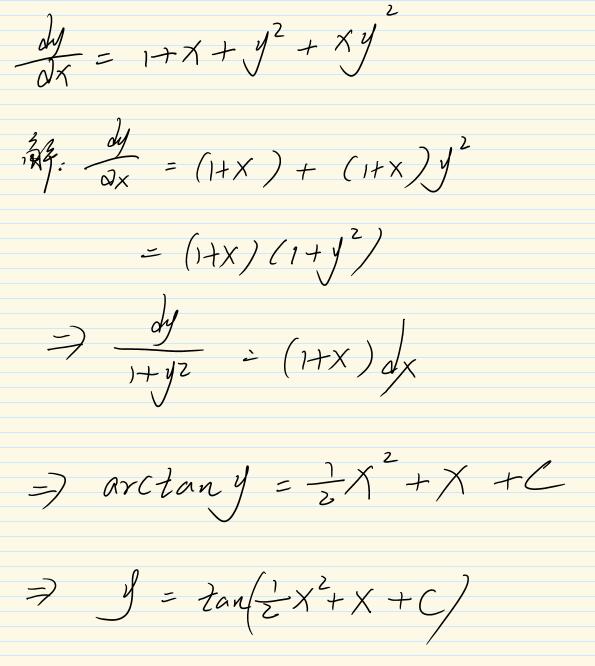 dy/dx = 1+x+y²+xy²
解: dy/dx = (1+x)+(1+x)y²
= (1+x)(1+y²)
⇒ dy/(1+y²) = (1+x)dx
⇒ arctan y = 1/2 x²+x+C
⇒ y = tan(1/2 x²+x+C)